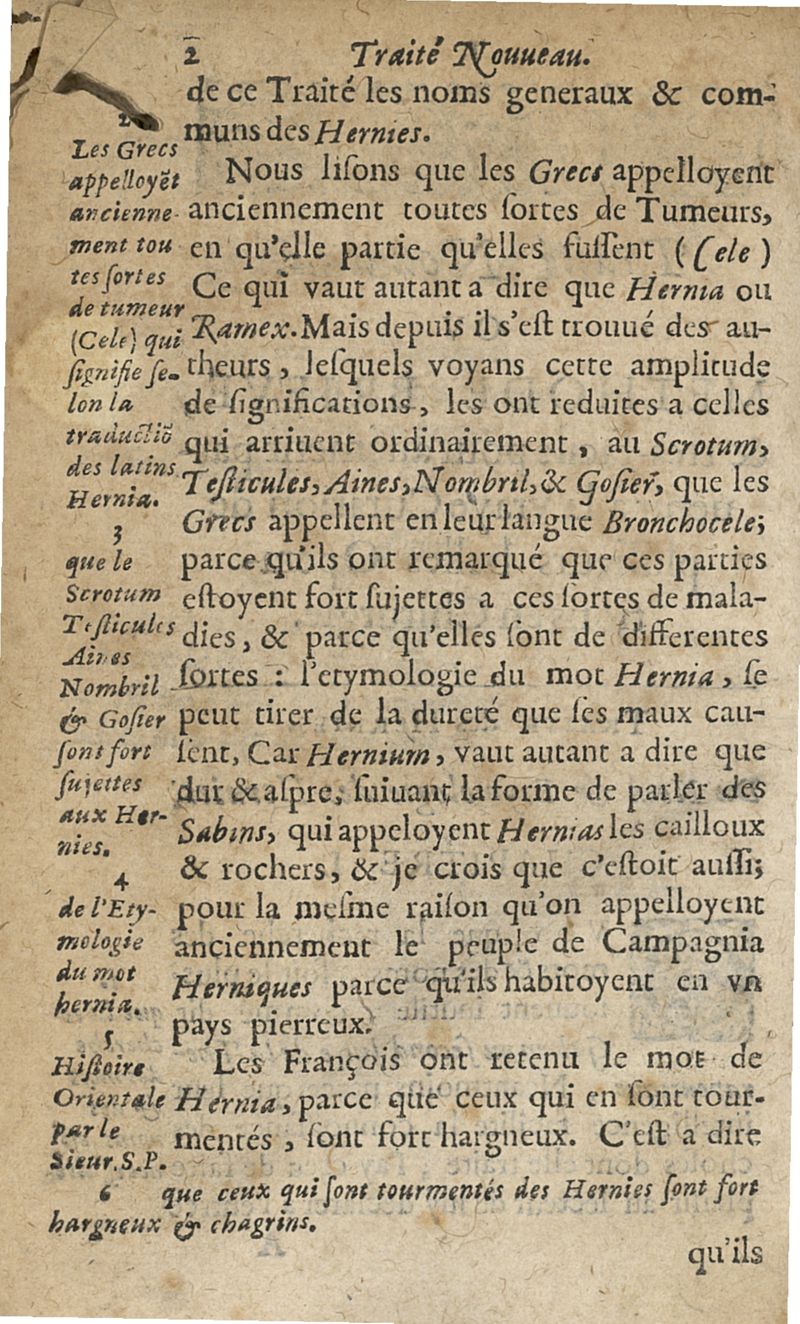 2 Traité Nouueau.
de ce Traité les noms generaux & com-
muns des Hernies.
Nous lisons que les Grecs appelloyent
anciennement toutes sortes de Tumeurs,
en qu'elle partie qu'elles fussent (Cele)
Ce qui vaut autant a dire que Hernia ou
Ramex. Mais depuis il s'est trouué des au-
theurs, lesquels voyans cette amplitude
de significations, les ont reduites a celles
qui arriuent ordinairement, au Scrotum,
Testicules, Aines, Nombril, & Gosier, que les
Grecs appellent en leur langue Bronchocele;
parce qu'ils ont remarqué que ces parties
estoyent fort sujettes a ces sortes de mala-
dies, & parce qu'elles sont de differentes
sortes : l'etymologie du mot Hernia, se
peut tirer de la dureté que ses maux cau-
sent, Car Hernium, vaut autant a dire que
dur & aspre, suiuant la forme de parler des
Sabins, qui appeloyent Hernias les cailloux
& rochers, & je crois que c'estoit aussi;
pour la mesme raison qu'on appelloyent
anciennement le peuple de Campagnia
Herniques parce qu'ils habitoyent en vn
pays pierreux.
Les François ont retenu le mot de
Hernia, parce que ceux qui en sont tour-
mentés, sont fort hargneux. C'est a dire
2
Les Grecs
appelloyẽt
ancienne-
ment tou
tes sortes
de tumeur
(Cele) qui
signifie se-
lon la
traductiõ
des latins
Hernia.
3
que le
Scrotum
Testicules
Aines
Nombril
& Gosier
sont fort
sujettes
aux Her-
nies.
4
de l'Ety-
mologie
du mot
hernia.
5
Histoire
Orientale
par le
Sieur. S. P.
6 que ceux qui sont tourmentés des Hernies sont fort
hargneux & chagrins.
qu'ils